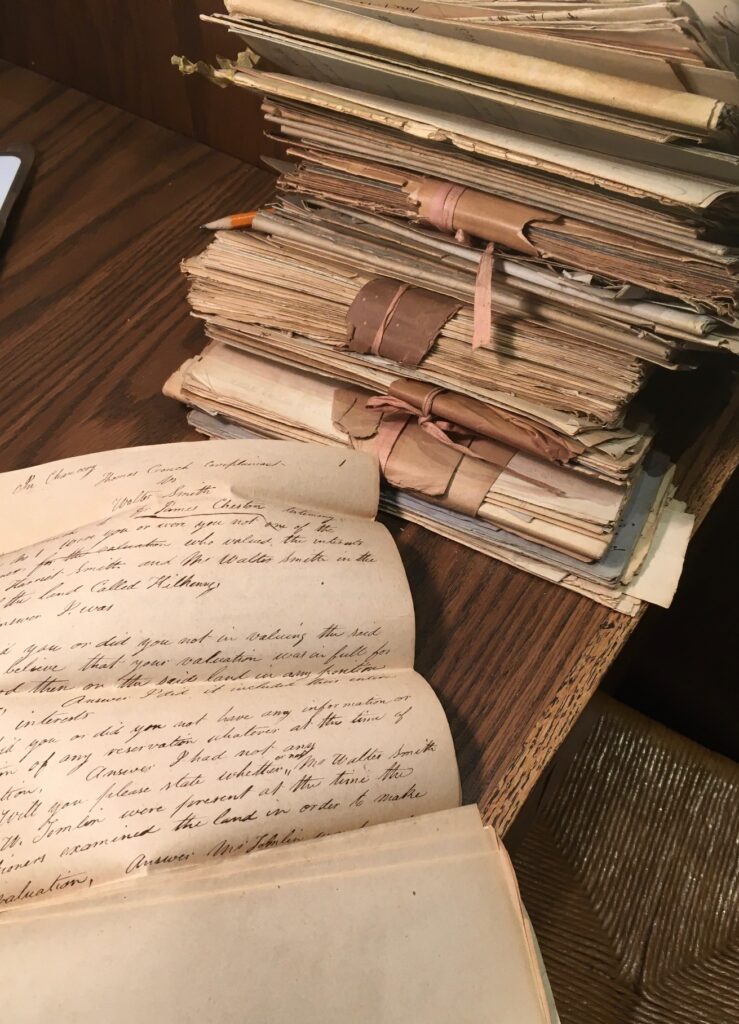 In Chancery Thomas Crouch complainant 1
Vs
Walter Smith
James Cheston testimony
No 1 Were you or were you not one of the
for the valuation who valued the interests
Harriet Smith and Mr Walter Smith in the
the land Called Kilkenny
Answer I was
you or did you not in valuing the said
believe that your valuation was in full for
then on the said land in any position
interests Answer I did it included their entire
did you or did you not have any information or
of any reservation whatever at the time of
Answer I had not any
Will you please state whether or not Mr Walter Smith
W. Tomlin were present at the time the
examined the land in order to make
valuation, Answer Mr Tomlin